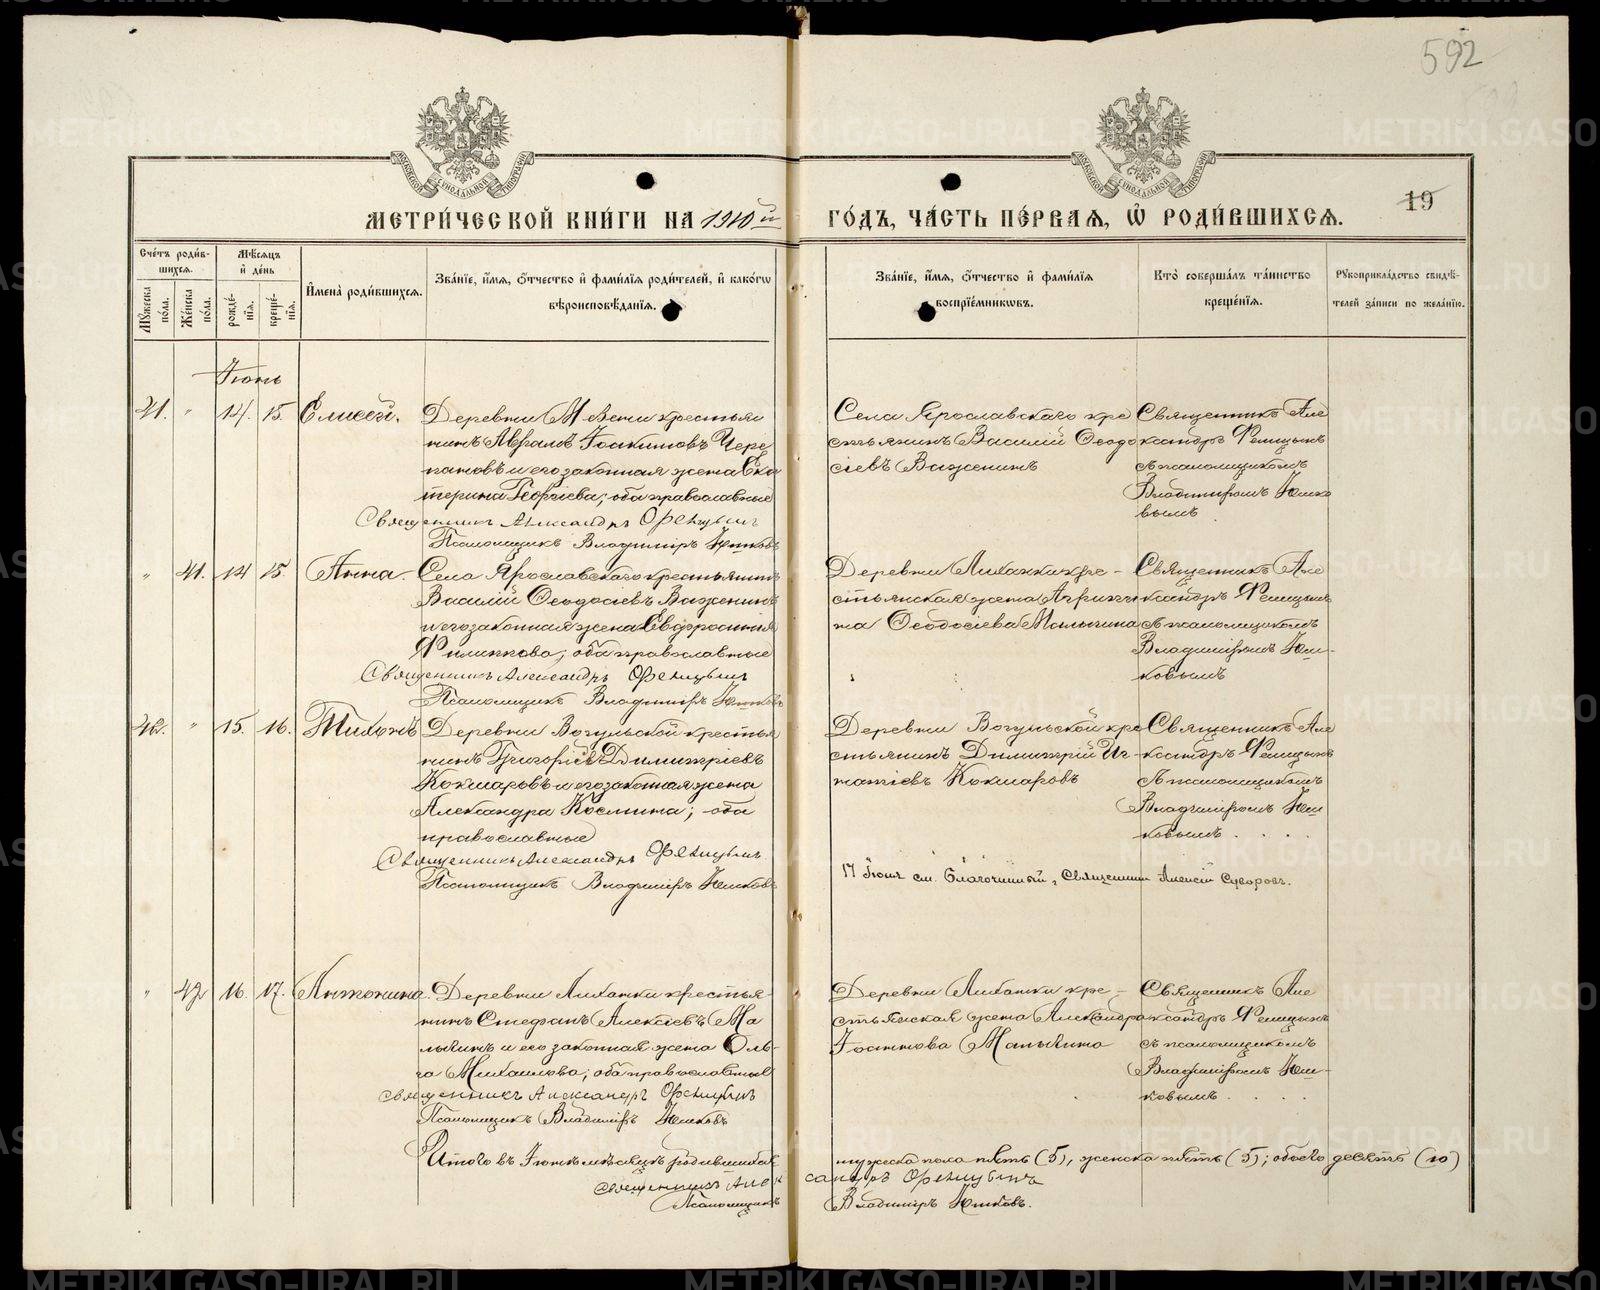 592
19
МЕТРИ́ЧЕСКОЙ КНИ́ГИ НА 1910й ГО́ДЪ, ЧА́СТЬ ПЕ́РВАЯ, Ѡ РОДИ́ВШИХСЯ.
МОСКОВСКОЙ СУНОДАЛЬНОЙ ТИПОГРАФІИ
МОСКОВСКОЙ СУНОДАЛЬНОЙ ТИПОГРАФІИ
Сче́тъ роди́в-
шихся.
Му́жеска
по́ла.
Же́нска
по́ла.
Мѣ́сяцъ
и҆ де́нь
рожде́-
нїѧ.
креще́-
нїѧ.
И҆мена̀ роди́вшихся.
Зва́нїе, и҆́мѧ, ѻ҆́тчество и҆ фами́лїѧ роди́телей, и҆ како́гѡ
вѣроисповѣ́данїѧ.
Зва́нїе, и҆́мѧ, ѻ҆́тчество и҆ фами́лїѧ
воспрїе́мникѡвъ.
Кто̀ соверша́лъ та́инство
креще́нїѧ.
Рꙋкоприкла́дство свидѣ́-
телей за́писи по жела́нїю.
Іюнь
41. " 14. 15. Елисей.
Деревни
крестьяни
нинъ Іоакимовъ Чере
пановъ и его законная жена Ека
терина Георгіева; оба православные
Священникъ Александръ
Псаломщикъ Владиміръ
Села Ярославскаго кре
стьянинъ Василій Ѳеодо
сіевъ Важенинъ
Священникъ Але
ксандръ
съ псаломщикомъ
Владиміромъ
" 41. 14 15. Анна.
Села Ярославскаго крестьянинъ
Василій Ѳеодосіевъ Важенинъ
и его законная жена Евфросинія
Филиппова; оба православные
Священникъ Александръ
Псаломщикъ Владиміръ
Деревни Лиханки кре-
стьянская жена Агриппи
на Ѳеодосіева Малыгина
Священникъ Але
ксандръ
съ псаломщикомъ
Владиміромъ
ковымъ
42. " 15. 16. Тихонъ
Деревни Вогульской крестья
нинъ Григорій Димитріевъ
Кокшаровъ и его законная жена
Александра Космина; оба
православные
Священникъ Александръ
Псаломщикъ Владиміръ
Деревни Вогульской кре
стьянинъ Димитрій Иг-
натіевъ Кокшаровъ
Священникъ Але
ксандръ
съ псаломщикомъ
Владиміромъ
ковымъ
17 Іюня см. Благочинный, Священникъ Алексій Суворовъ.
" 42 16. 17. Антонина.
Деревни Лиханки крестья-
нинъ Стефанъ Алексіевъ Ма
лыгинъ и его законная жена Оль-
га Михаилова; оба православные
Священникъ Александръ
Псаломщикъ Владиміръ
Деревни Лиханки кре-
стьянская жена Александра
Малыгина
Священникъ Але
ксандръ
съ псаломщикомъ
Владиміромъ
ковымъ
Итого въ Іюнѣ мѣсяцѣ родившихся мужеска пола пять (5), женска пять (5); обоего десять (10)
Священникъ Александръ
Псаломщикъ Владиміръ
METRIKI.GASO-URAL.RU